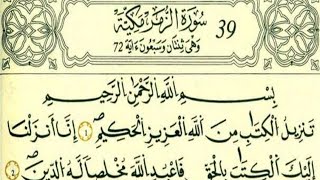 سُورَةُ الزُّمَرِ مَكِّيَّةٌ
39
وَهِيَ ثِنْتَانِ وَسَبْعُونَ اٰيَةً 72
بِسْمِ اللّٰهِ الرَّحْمٰنِ الرَّحِيمِ
تَنْزِيلُ الْكِتَابِ مِنَ اللّٰهِ الْعَزِيزِ الْحَكِيمِ ١ اِنَّا اَنْزَلْنَا
اِلَيْكَ الْكِتَابَ بِالْحَقِّ فَاعْبُدِ اللّٰهَ مُخْلِصًا لَهُ الدِّينَ ٢